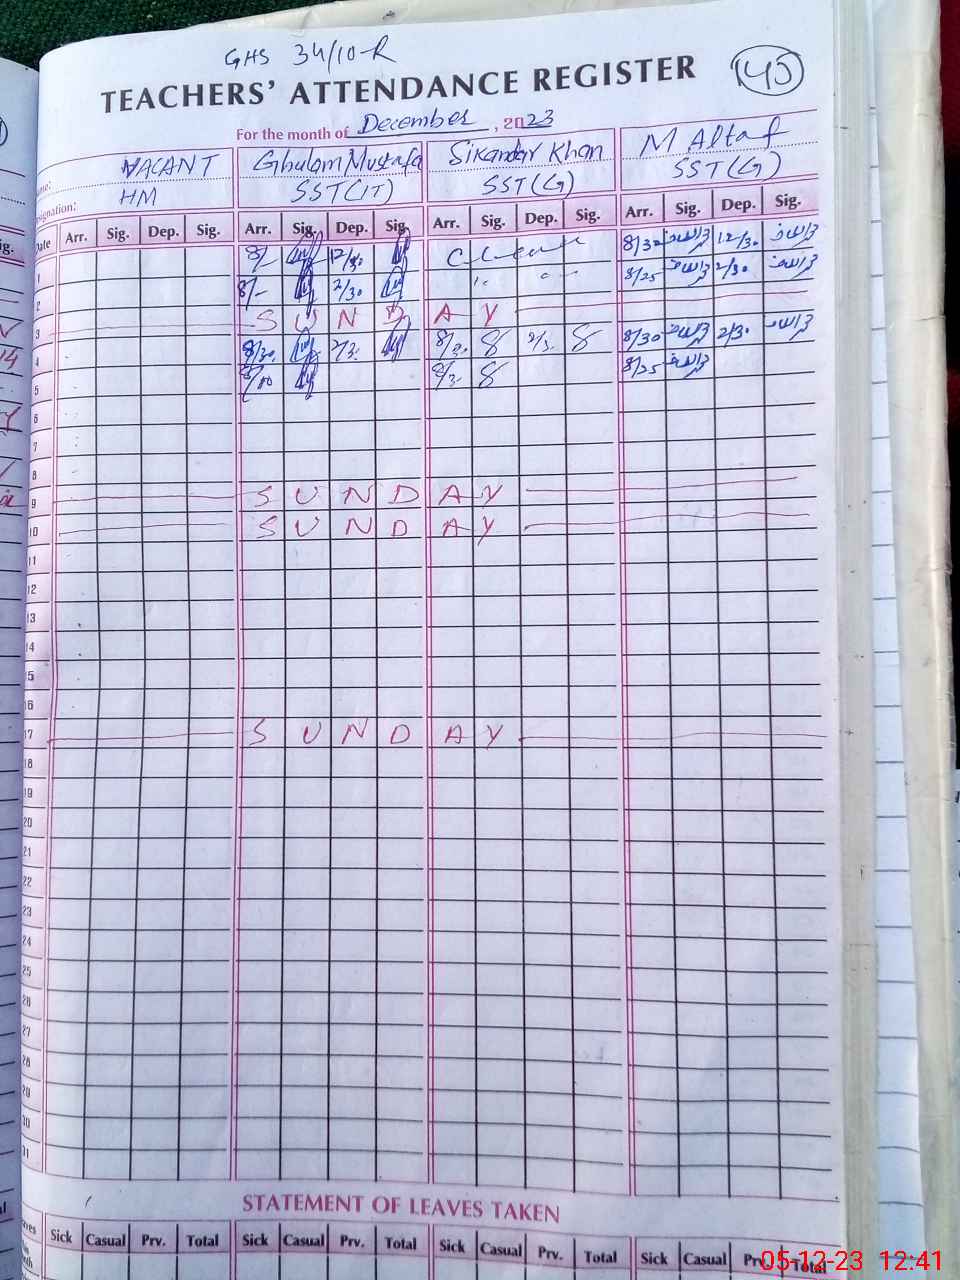 GHS 34/10-R
145
TEACHERS' ATTENDANCE REGISTER
For the month of December, 2023
VACANT Ghulam Mustafa Sikandar Khan M Altaf
HM SST(IT) SST(G) SST(G)
Date Arr. Sig. Dep. Sig. Arr. Sig. Dep. Sig. Arr. Sig. Dep. Sig. Arr. Sig. Dep. Sig.
1 8/- 12/30 C Leave 8/30 12/30
2 8/- 2/30 8/25 2/30
3 S U N D A Y
4 8/30 8/30 8/30 2/30
5 8/00 8/25
6
7
8
9 S U N D A Y
10 S U N D A Y
11
12
13
14
15
16
17 S U N D A Y
18
19
20
21
22
23
24
25
26
27
28
29
30
31
STATEMENT OF LEAVES TAKEN
Sick Casual Prv. Total Sick Casual Prv. Total Sick Casual Prv. Total Sick Casual Prv. Total
05-12-23 12:41